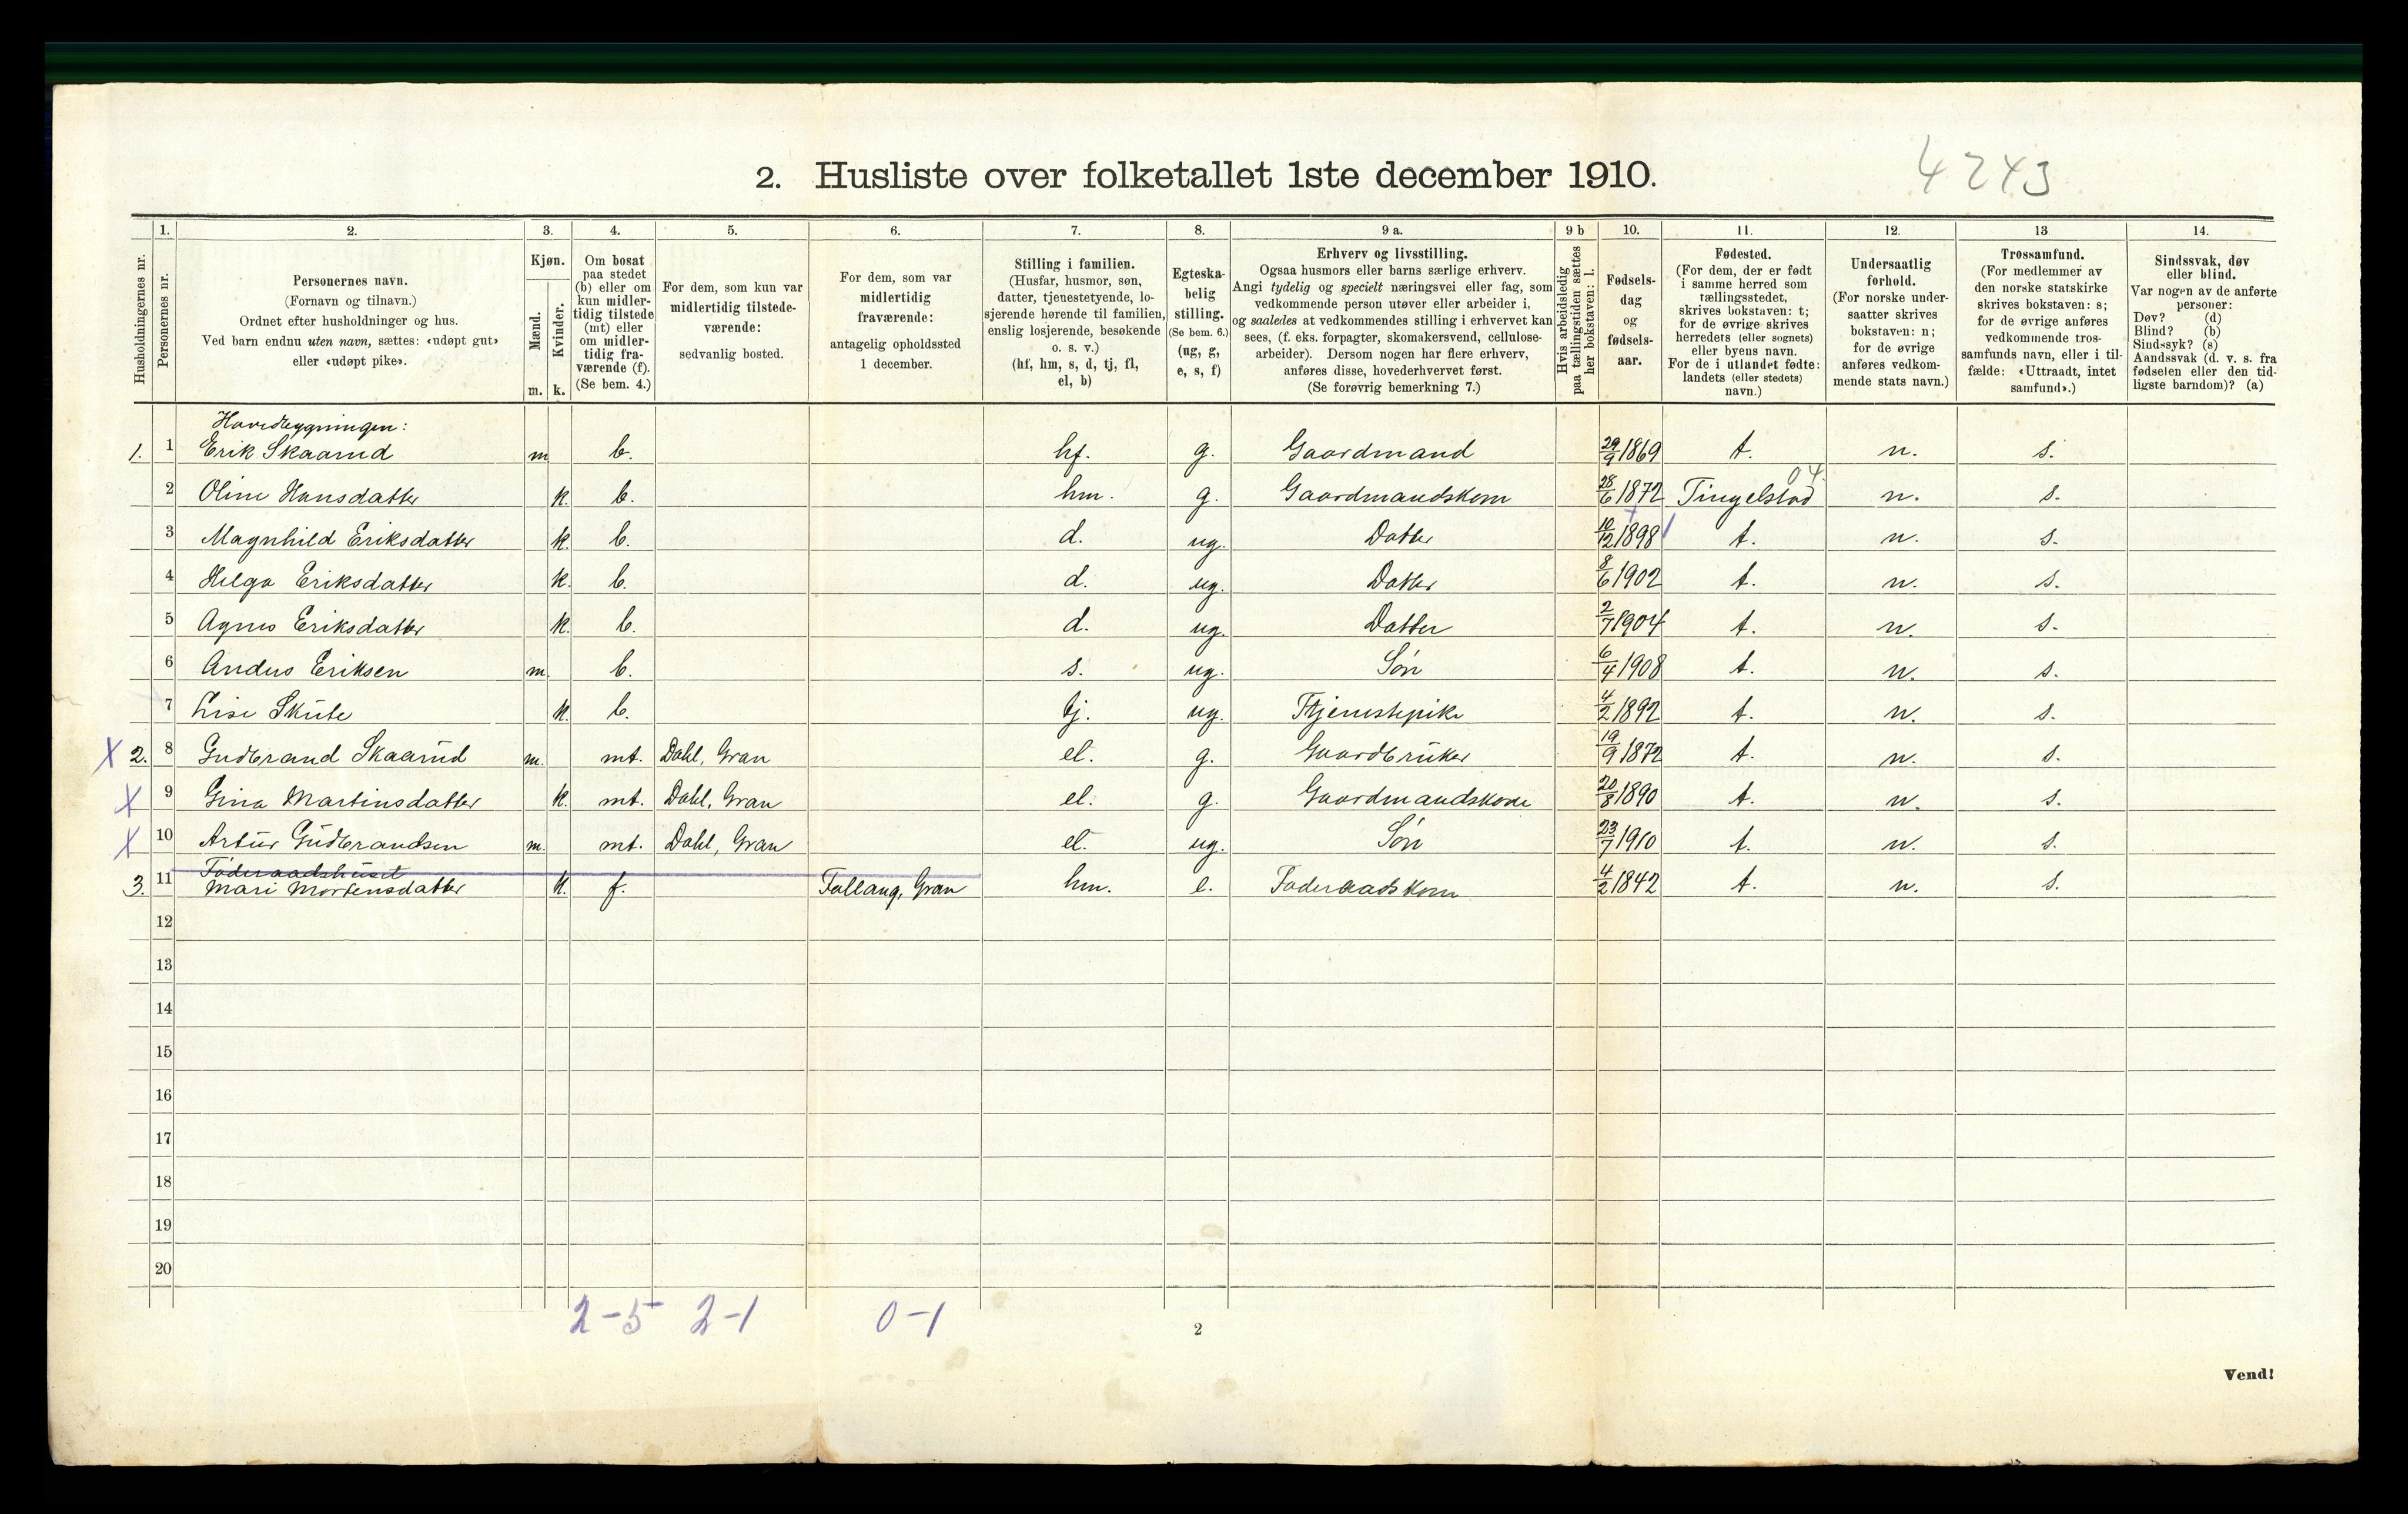 2. Husliste over folketallet 1ste december 1910.
4243
Husholdningernes nr.
1.
Personernes nr.
2.
Personernes navn.
(Fornavn og tilnavn.)
Ordnet efter husholdninger og hus.
Ved barn endnu uten navn, sættes: «udøpt gut»
eller «udøpt pike».
3.
Kjøn.
Mænd.
Kvinder.
m. k.
4.
Om bosat
paa stedet
(b) eller om
kun midler-
tidig tilstede
(mt) eller
om midler-
tidig fra-
værende (f).
(Se bem. 4.)
5.
For dem, som kun var
midlertidig tilstede-
værende:
sedvanlig bosted.
6.
For dem, som var
midlertidig
fraværende:
antagelig opholdssted
1 december.
7.
Stilling i familien.
(Husfar, husmor, søn,
datter, tjenestetyende, lo-
sjerende hørende til familien,
enslig losjerende, besøkende
o. s. v.)
(hf, hm, s, d, tj, fl,
el, b)
8.
Egteska-
belig
stilling.
(Se bem. 6.)
(ug, g,
e, s, f)
9 a.
Erhverv og livsstilling.
Ogsaa husmors eller barns særlige erhverv.
Angi tydelig og specielt næringsvei eller fag, som
vedkommende person utøver eller arbeider i,
og saaledes at vedkommendes stilling i erhvervet kan
sees, (f. eks. forpagter, skomakersvend, cellulose-
arbeider). Dersom nogen har flere erhverv,
anføres disse, hovederhvervet først.
(Se forøvrig bemerkning 7.)
9 b
Hvis arbeidsledig
paa tællingstiden sættes
her bokstaven: l.
10.
Fødsels-
dag
og
fødsels-
aar.
11.
Fødested.
(For dem, der er født
i samme herred som
tællingsstedet,
skrives bokstaven: t;
for de øvrige skrives
herredets (eller sognets)
eller byens navn.
For de i utlandet fødte:
landets (eller stedets)
navn.)
12.
Undersaatlig
forhold.
(For norske under-
saatter skrives
bokstaven: n;
for de øvrige
anføres vedkom-
mende stats navn.)
13
Trossamfund.
(For medlemmer av
den norske statskirke
skrives bokstaven: s;
for de øvrige anføres
vedkommende tros-
samfunds navn, eller i til-
fælde: «Uttraadt, intet
samfund».)
14.
Sindssvak, døv
eller blind.
Var nogen av de anførte
personer:
Døv? (d)
Blind? (b)
Sindssyk? (s)
Aandssvak (d. v. s. fra
fødselen eller den tid-
ligste barndom)? (a)
Hovedbygningen:
1. 1 Erik Skaarud m b. hf. g. Gaardmand 29/9 1869 t. n. s.
04.
2 Oline Hansdatter k. b. hm. g. Gaardmandskone 28/6 1872 Tingelstad n. s.
3 Magnhild Eriksdatter k. b. d. ug. Datter 10/12 1898 t. n. s.
4 Helga Eriksdatter k. b. d. ug. Datter 8/6 1902 t. n. s.
5 Agnes Eriksdatter k. b. d. ug. Datter 2/7 1904 t. n. s.
6 Anders Eriksen m. b. s. ug. Søn 6/4 1908 t. n. s.
7 Lise Skute k. b. tj. ug. Tjenestepike 4/2 1892 t. n. s.
X 2. 8 Gudbrand Skaarud m. mt. Dahl, Gran el. g. Gaardbruker 19/9 1872 t. n. s.
X 9 Gina Martinsdatter k. mt. Dahl, Gran el. g. Gaardmandskone 20/8 1890 t. n. s.
X 10 Artur Gudbrandsen m. mt. Dahl, Gran el. ug. Søn 23/7 1910 t. n. s.
Føderaadshuset
3. 11 Mari Mortensdatter k. f. Fallang, Gran hm. e. Føderaadskone 4/2 1842 t. n. s.
12
13
14
15
16
17
18
19
20
2-5 2-1 0-1
2
Vend!